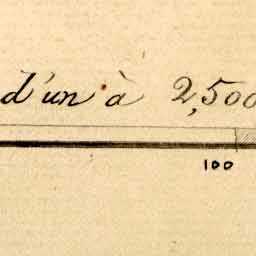 d'un à 2,500
100